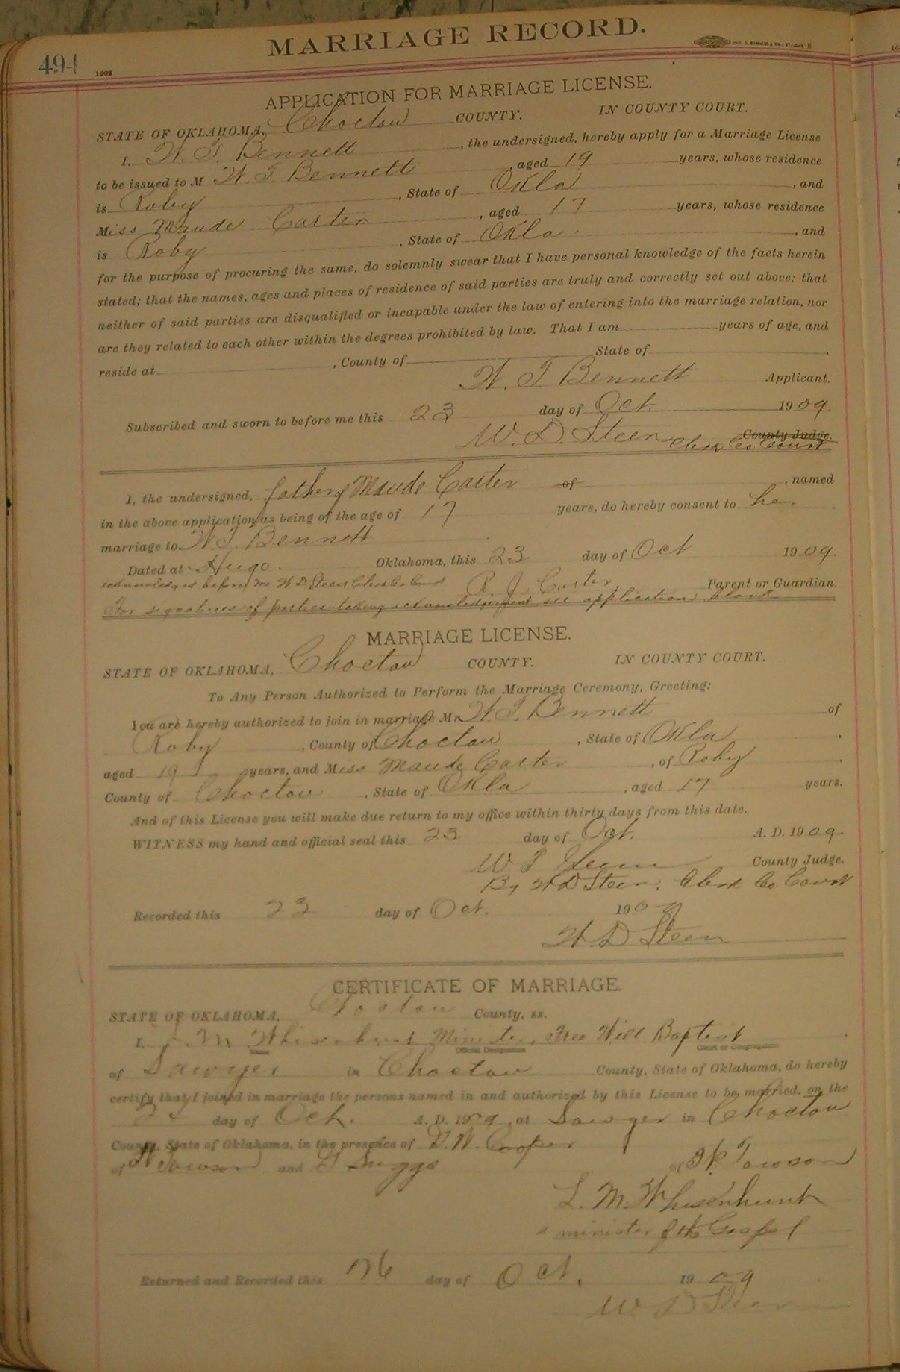 MARRIAGE RECORD.
494
APPLICATION FOR MARRIAGE LICENSE.
STATE OF OKLAHOMA, Choctaw COUNTY. IN COUNTY COURT.
I, W. T. Bennett, the undersigned, hereby apply for a Marriage License
to be issued to M W. T. Bennett, aged 19 years, whose residence
is Roby, State of Okla, and
Miss Maude Carter, aged 17 years, whose residence
is Roby, State of Okla., and
for the purpose of procuring the same, do solemnly swear that I have personal knowledge of the facts herein
stated; that the names, ages and places of residence of said parties are truly and correctly set out above; that
neither of said parties are disqualified or incapable under the law of entering into the marriage relation, nor
are they related to each other within the degrees prohibited by law. That I am years of age, and
reside at , County of State of .
W. T. Bennett Applicant.
Subscribed and sworn to before me this 23 day of Oct. 1909
W. D. Steen Clerk Co Court County Judge.
I, the undersigned, father of Maude Carter of , named
in the above application as being of the age of 17 years, do hereby consent to her
marriage to W. T. Bennett
Dated at Hugo. Oklahoma, this 23 day of Oct 1909.
acknowledged before me W D Steen Clerk Co Court R. J. Carter Parent or Guardian.
For signatures of parties taking acknowledgement see application
MARRIAGE LICENSE.
STATE OF OKLAHOMA, Choctaw COUNTY. IN COUNTY COURT.
To Any Person Authorized to Perform the Marriage Ceremony, Greeting:
You are hereby authorized to join in marriage Mr. W. T. Bennett of
Roby, County of Choctaw, State of Okla,
aged 19 years, and Miss Maude Carter, of Roby
County of Choctaw, State of Okla, aged 17 years.
And of this License you will make due return to my office within thirty days from this date.
WITNESS my hand and official seal this 23 day of Oct. A. D. 1909.
W T Glenn County Judge.
By W D Steen. Clerk Co Court
Recorded this 23 day of Oct. 1909
W D Steen
CERTIFICATE OF MARRIAGE.
STATE OF OKLAHOMA, Choctaw County, ss.
I, L. M Whisenhunt Minister, Free Will Baptist
of Sawyer in Choctaw County, State of Oklahoma, do hereby
certify that I joined in marriage the persons named in and authorized by this License to be married, on the
day of Oct. A. D. 1909, at Sawyer in Choctaw
County, State of Oklahoma, in the presence of D. W. Cooper
of Towson and Suggs of Towson
L. M. Whisenhunt
a minister of the Gospel
Returned and Recorded this 26 day of Oct. 1909
W D Steen